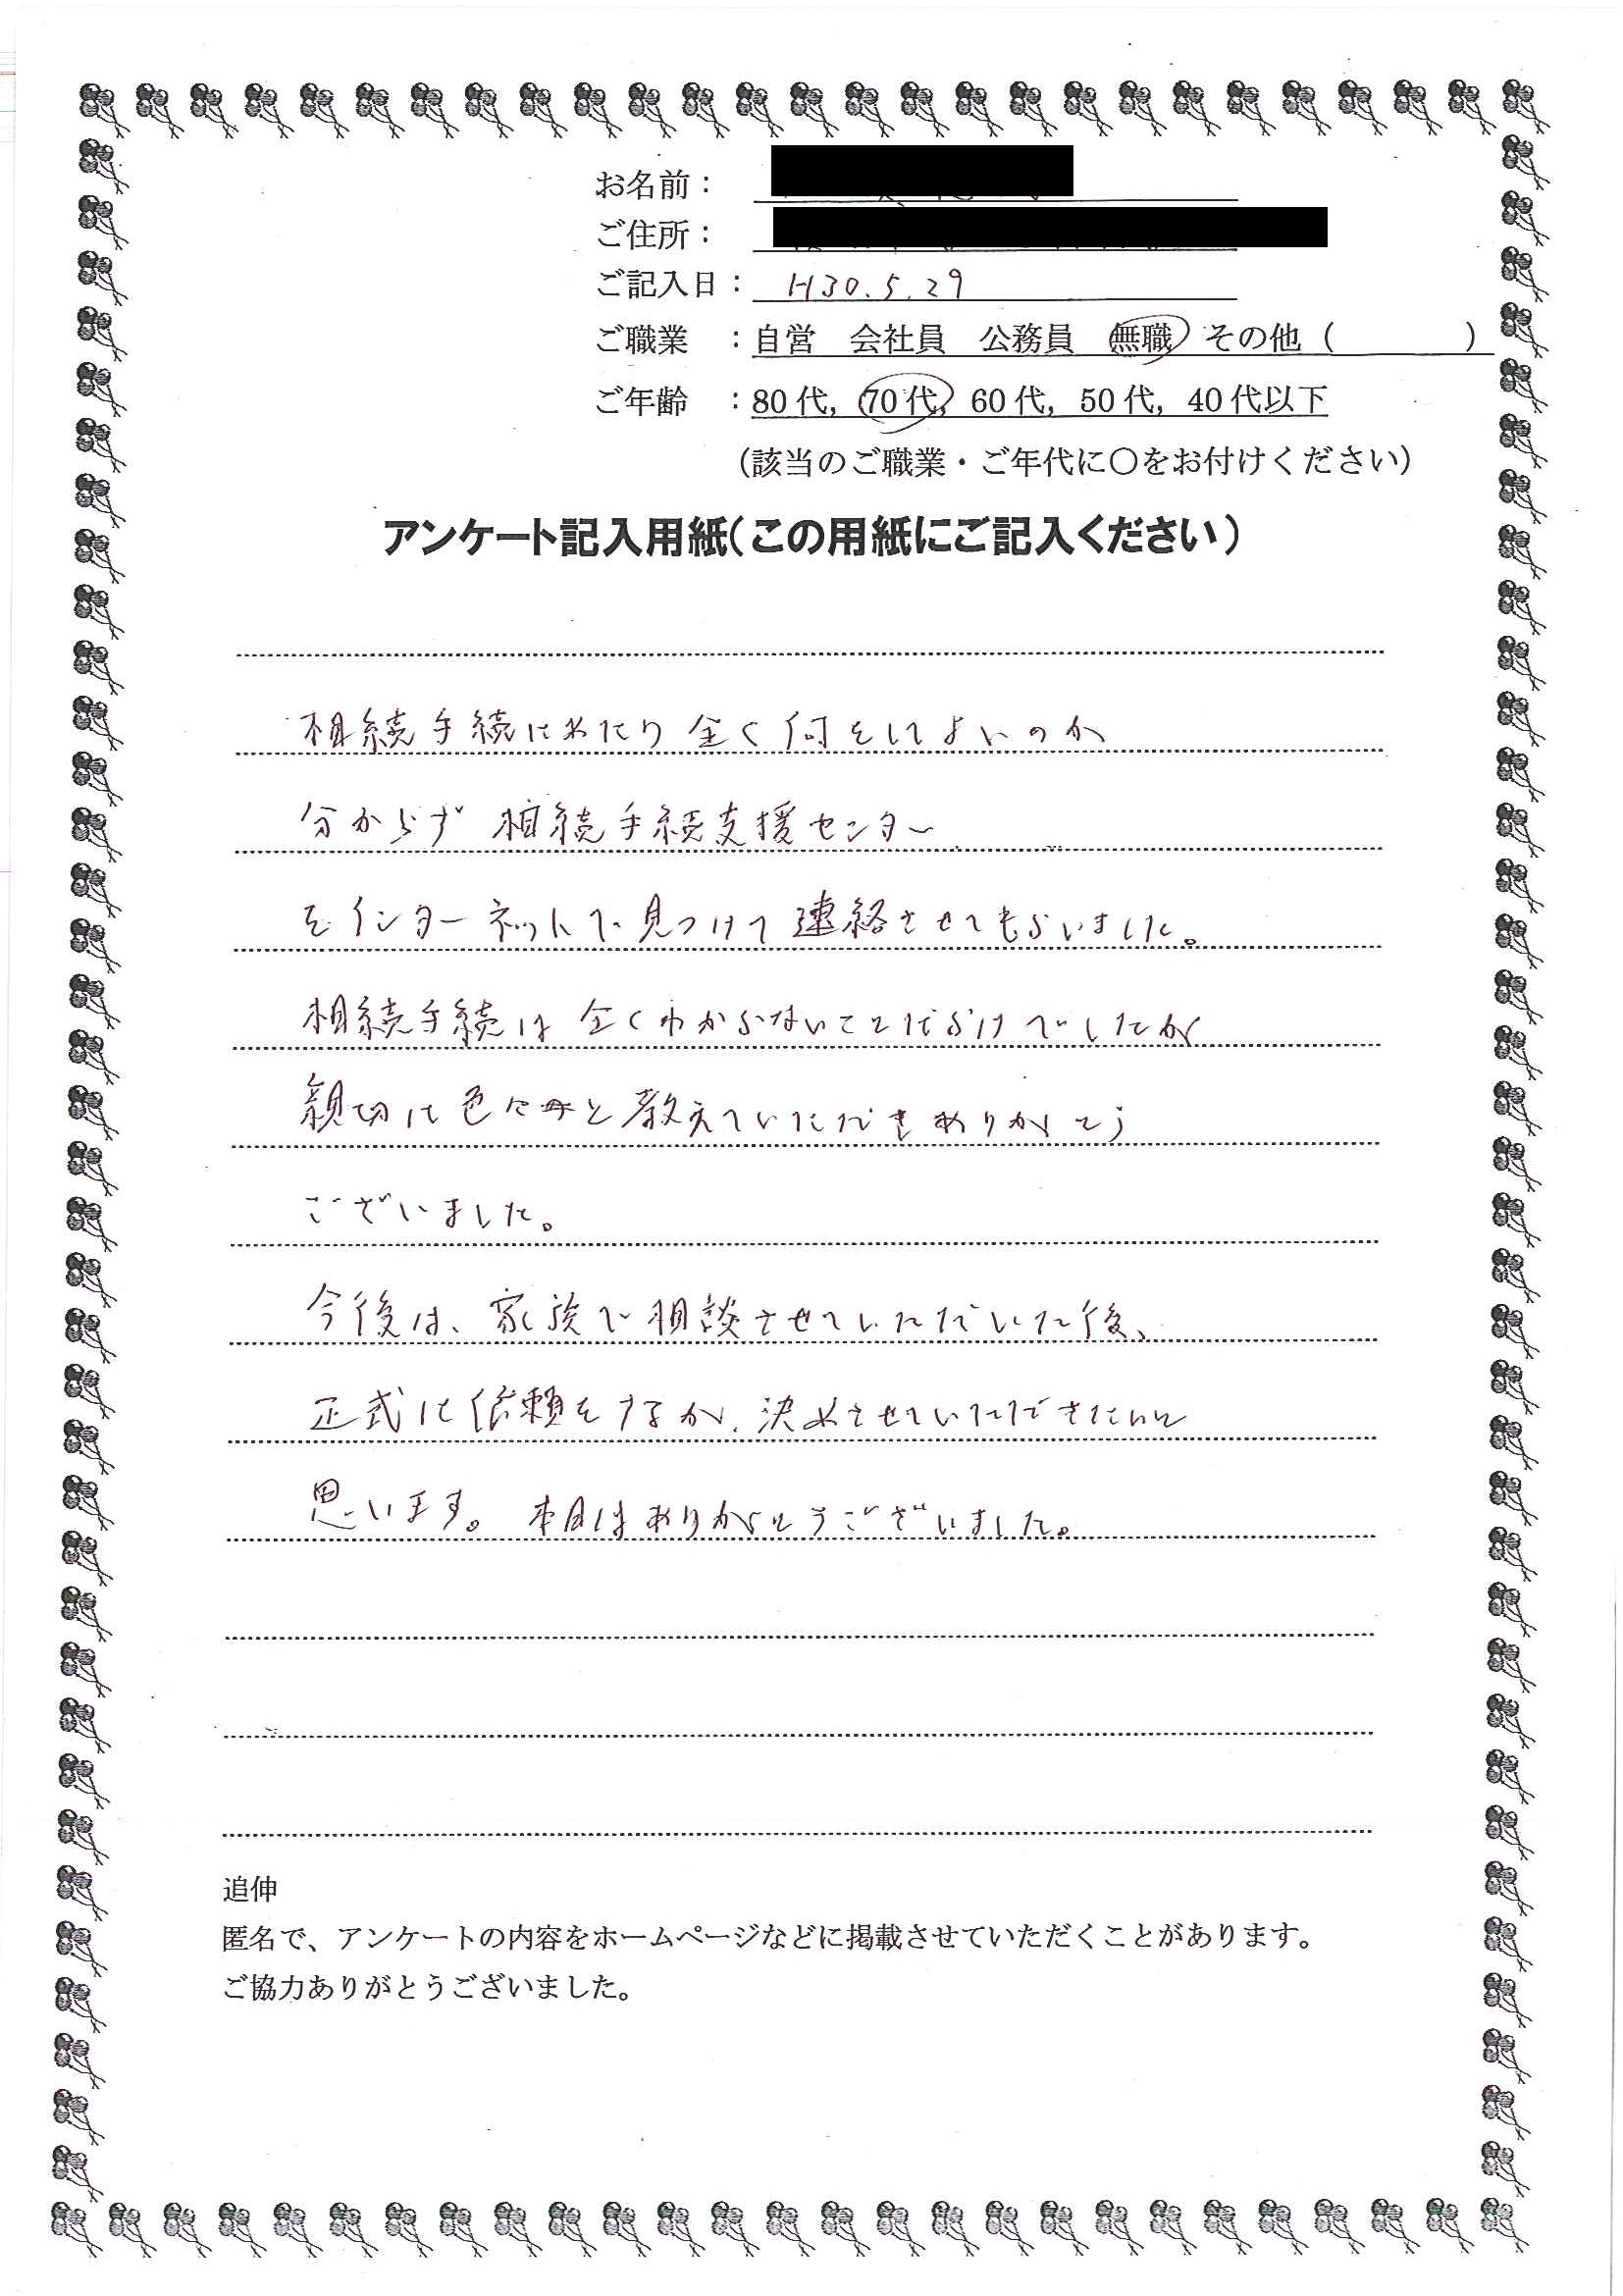 お名前：
ご住所：
ご記入日： H30.5.29
ご職業 ：自営 会社員 公務員 無職 その他（ ）
ご年齢 ：80代，70代，60代，50代，40代以下
（該当のご職業・ご年代に〇をお付けください）
アンケート記入用紙（この用紙にご記入ください）
相続手続にあたり全く何をしてよいのか
分からず 相続手続支援センター
をインターネットで見つけて連絡させてもらいました。
相続手続は全くわからないことだらけでしたが
親切に色々と教えていただきありがとう
ございました。
今後は、家族で相談させていただいた後、
正式に依頼をするか、決めさせていただきたいと
思います。本日はありがとうございました。
追伸
匿名で、アンケートの内容をホームページなどに掲載させていただくことがあります。
ご協力ありがとうございました。